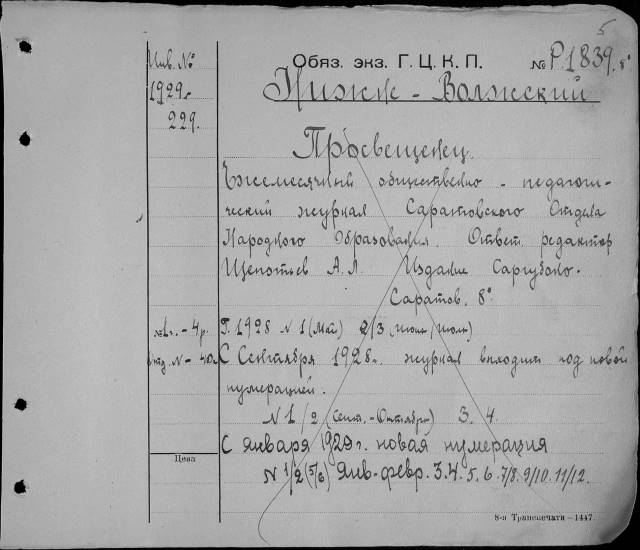 5
Инв. №
1929г.
229.
Обяз. экз. Г. Ц. К. П. № Р1839. 8°
Нижне - Волжский
Просвещенец
Ежемесячный общественно - педагоги-
ческий журнал Саратовского Отдела
Народного Образования. Ответ. редактор
Щепотьев А. Л. Издание Саргубоно.
Саратов. 8°
№1г. - 4р.
Г. 1928 N 1 (Май) 2/3 (июнь, июль)
отд. N - 40к.
С Сентября 1928г. журнал выходит под новой
нумерацией.
N 1/2 (Сент. - Октябрь) 3. 4.
С января 1929г. новая нумерация
Цена
N 1/2 (5/6) Янв-февр. 3.4. 5. 6. 7/8. 9/10. 11/12.
8-я Транспечати — 1447.